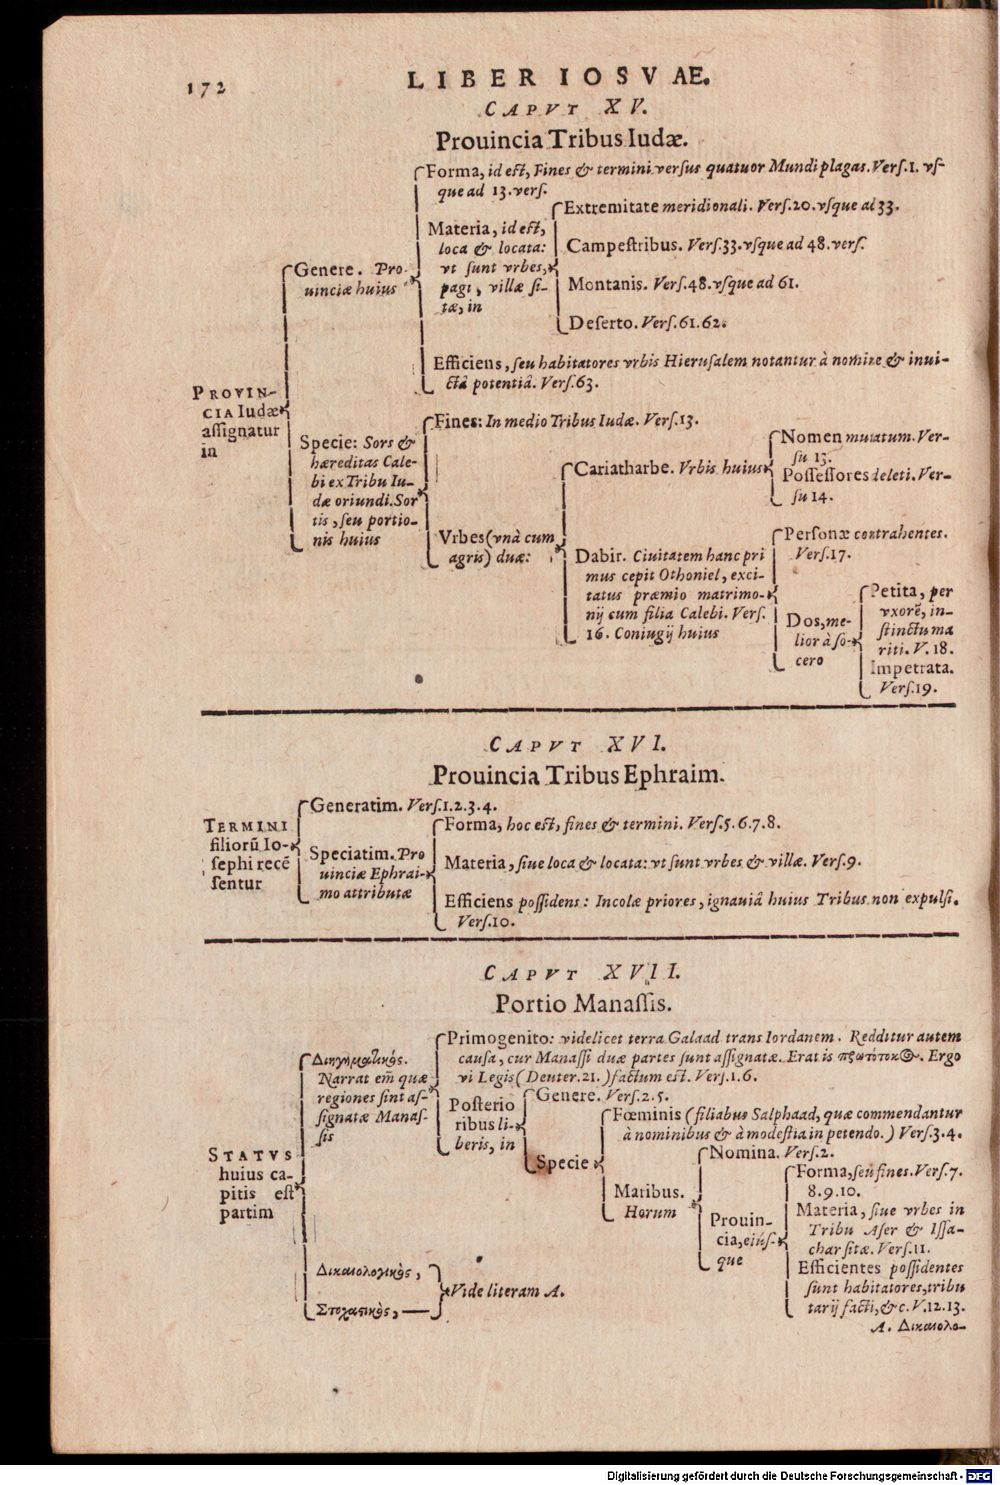 172
LIBER IOSVAE.
CAPVT XV.
Prouincia Tribus Iudæ.
Forma, id est, Fines & termini versus quatuor Mundi plagas. Vers.1. vs-
que ad 13. vers.
Materia, id est,
loca & locata:
vt sunt vrbes,
pagi, villæ si-
tæ, in
Extremitate meridionali. Vers.20. vsque ad 33.
Campestribus. Vers.33. vsque ad 48. vers.
Montanis. Vers.48. vsque ad 61.
Deserto. Vers.61.62.
Genere. Pro-
uinciæ huius
Efficiens, seu habitatores vrbis Hierusalem notantur à nomine & inui-
ctâ potentiâ. Vers.63.
PROVIN-
CIA Iudæ
assignatur
in
Specie: Sors &
hæreditas Cale-
bi ex Tribu Iu-
dæ oriundi. Sor
tis, seu portio-
nis huius
Fines: In medio Tribus Iudæ. Vers.13.
Vrbes (vnà cum
agris) duæ:
Cariatharbe. Vrbis huius
Nomen mutatum. Ver-
su 13.
Possessores deleti. Ver-
su 14.
Dabir. Ciuitatem hanc pri
mus cepit Othoniel, exci-
tatus præmio matrimo-
nij cum filia Calebi. Vers.
16. Coniugij huius
Personæ contrahentes.
Vers.17.
Dos, me-
lior à so-
cero
Petita, per
vxorē, in-
stinctu ma
riti. V. 18.
Impetrata.
Vers.19.
CAPVT XVI.
Prouincia Tribus Ephraim.
TERMINI
filiorū Io-
sephi recē
sentur
Generatim. Vers.1.2.3.4.
Speciatim. Pro
uinciæ Ephrai-
mo attributæ
Forma, hoc est, fines & termini. Vers.5.6.7.8.
Materia, siue loca & locata: vt sunt vrbes & villæ. Vers.9.
Efficiens possidens: Incolæ priores, ignauiâ huius Tribus non expulsi.
Vers.10.
CAPVT XVII.
Portio Manassis.
STATVS
huius ca-
pitis est
partim
Διηγηματικός.
Narrat em̄ quæ
regiones sint as-
signatæ Manas-
sis
Primogenito: videlicet terra Galaad trans Iordanem. Redditur autem
causa, cur Manassi duæ partes sunt assignatæ. Erat is πρωτότοκος. Ergo
vi Legis (Deuter.21.) factum est. Vers.1.6.
Posterio
ribus li-
beris, in
Genere. Vers.2.5.
Specie
Fœminis (filiabus Salphaad, quæ commendantur
à nominibus & à modestia in petendo.) Vers.3.4.
Maribus.
Horum
Nomina. Vers.2.
Prouin-
cia, eiúsque
Forma, seu fines. Vers.7.
8.9.10.
Materia, siue vrbes in
Tribu Aser & Issa-
char sitæ. Vers.11.
Efficientes possidentes
sunt habitatores, tribu
tarij facti, &c. V.12.13.
Δικαιολογικὸς,
Στοχαστικὸς,
Vide literam A.
A. Δικαιολο-
Digitalisierung gefördert durch die Deutsche Forschungsgemeinschaft - DFG